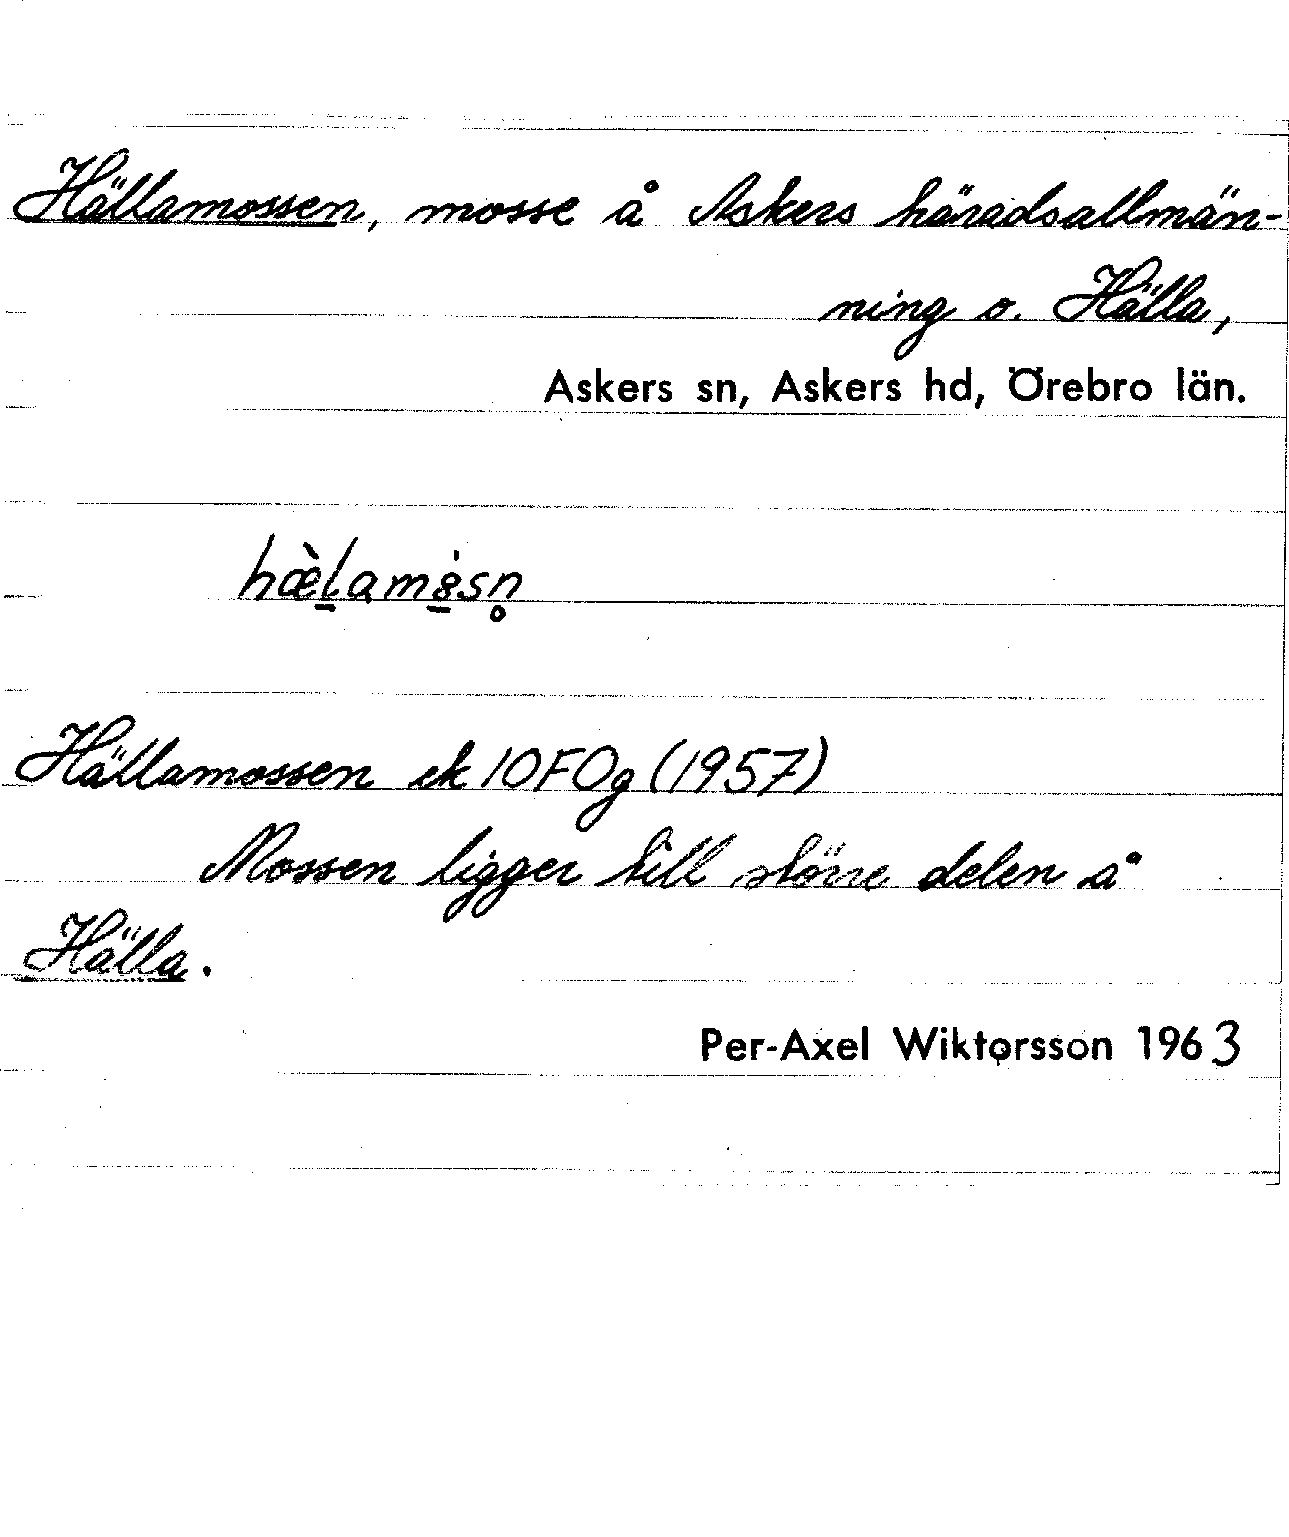 Hällamossen, mosse å Askers häradsallmän-
ning o. Hälla,
Askers sn, Askers hd, Örebro län.
hæ̀l̠amȯ̠sn̥
Hällamossen ek 10F0g (1957)
Mossen ligger till större delen å
Hälla.
Per-Axel Wiktorsson 1963